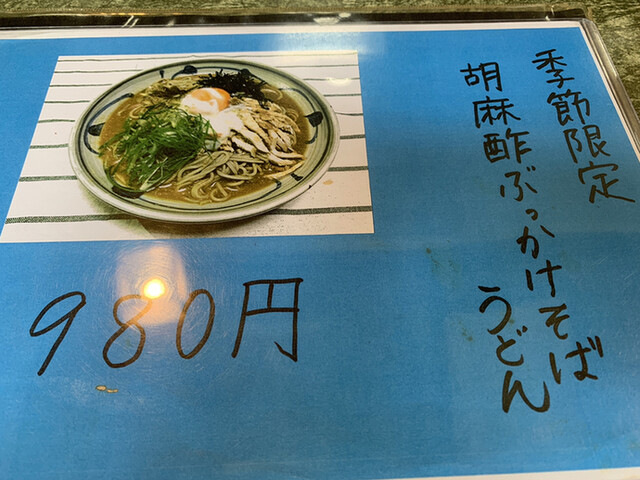 季節限定
胡麻酢ぶっかけそば
うどん
980円